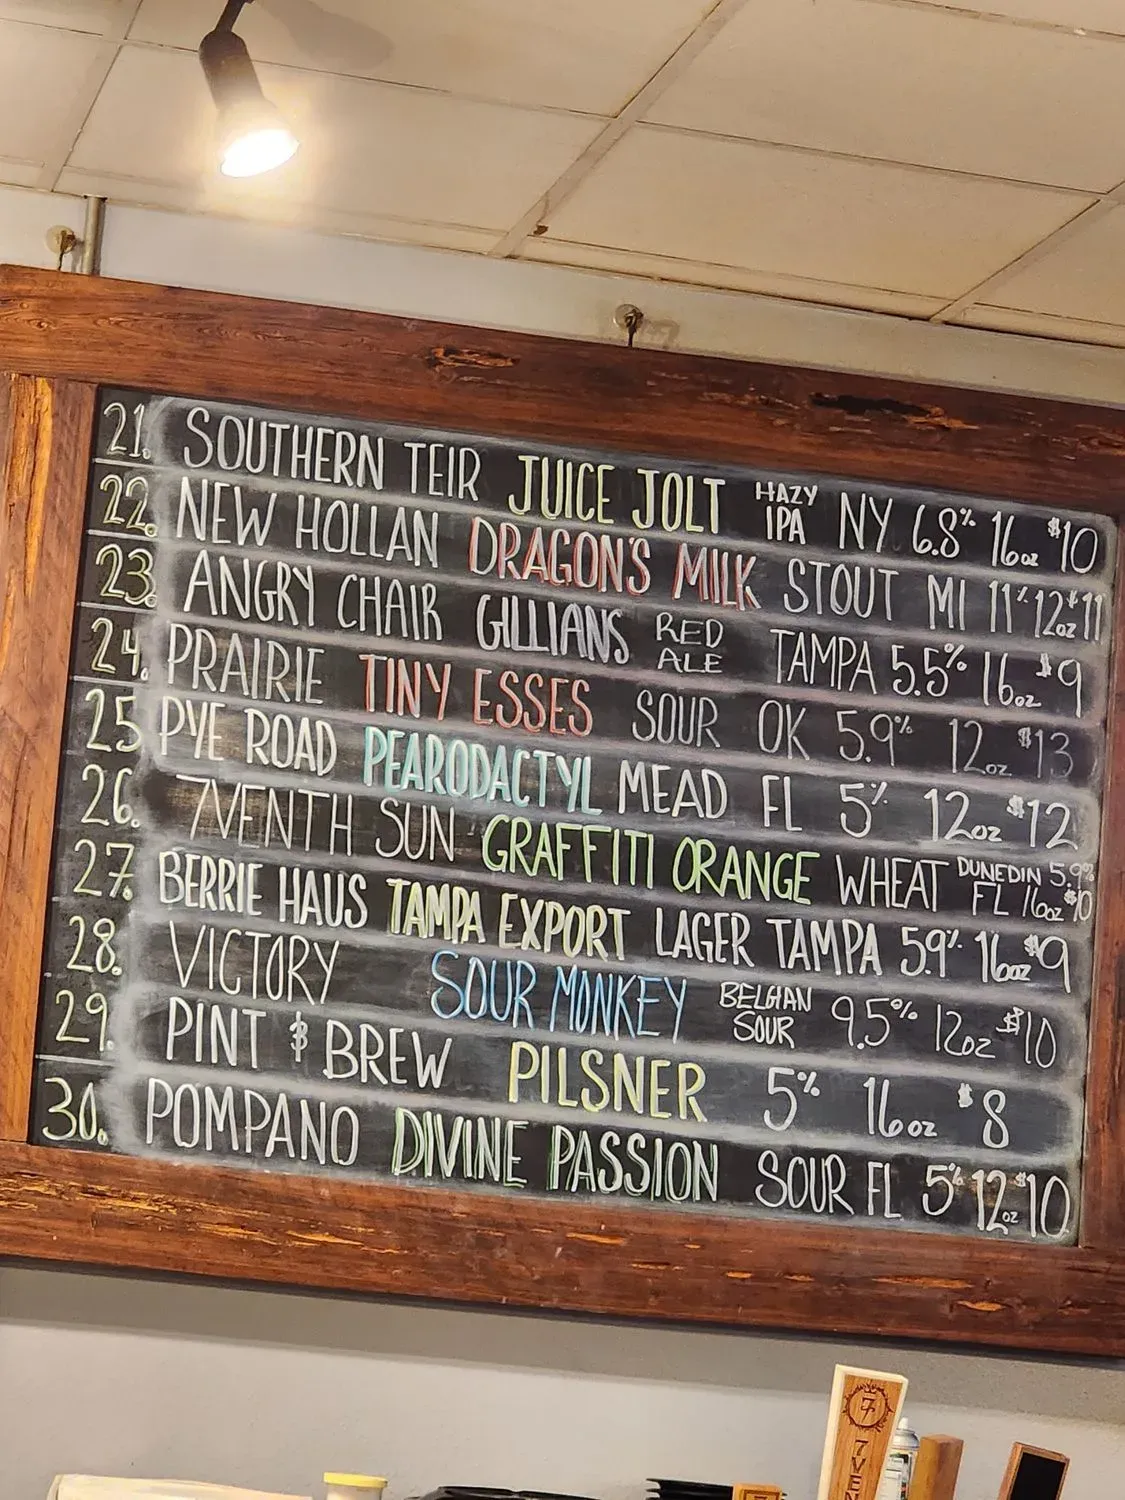 21. SOUTHERN TEIR JUICE JOLT HAZY IPA NY 6.8% 16oz $10
22. NEW HOLLAN DRAGON'S MILK STOUT MI 11% 12oz $11
23. ANGRY CHAIR GILLIANS RED ALE TAMPA 5.5% 16oz $9
24. PRAIRIE TINY ESSES SOUR OK 5.9% 12oz $13
25 PYE ROAD PEARODACTYL MEAD FL 5% 12oz $12
26. 7VENTH SUN GRAFFITI ORANGE WHEAT DUNEDIN FL 5.9% 16oz $10
27. BERRIE HAUS TAMPA EXPORT LAGER TAMPA 5.9% 16oz $9
28. VICTORY SOUR MONKEY BELGIAN SOUR 9.5% 12oz $10
29. PINT & BREW PILSNER 5% 16oz $8
30. POMPANO DIVINE PASSION SOUR FL 5% 12oz $10
7
7VEN
7